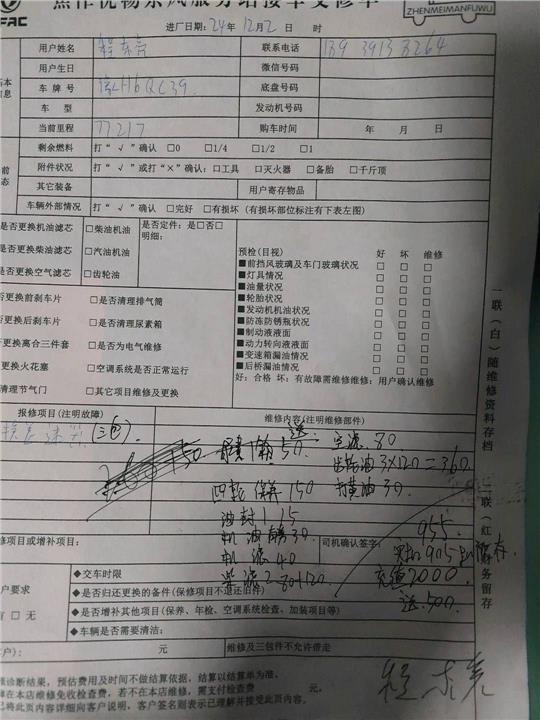 焦作优畅东风服务站接车交修单
FAC
ZHENMEIMANFUWU
进厂日期：24年12月2日 时
用户姓名 联系电话 189 3913 8264
用户生日 微信号码
车牌号 H6QC39 底盘号码
车 型 发动机号码
当前里程 77217 购车时间 年 月 日
剩余燃料 打“√”确认 □0 □1/4 □1/2 □1
附件状况 打“√”或打“×”确认：□工具 □灭火器 □备胎 □千斤顶
其它装备 用户寄存物品
车辆外部情况 打“√”确认 □完好 □有损坏（有损坏部位标注有下表左图）
是否更换机油滤芯 □柴油机油 是否定件：是□否□
明细：
是否更换柴油滤芯 □汽油机油
是否更换空气滤芯 □齿轮油
预检(目视) 好 坏 维修
■前挡风玻璃及车门玻璃状况 □ □ □
■灯具情况 □ □ □
■油量状况 □ □ □
■轮胎状况 □ □ □
■发动机机油状况 □ □ □
■防冻防锈瓶状况 □ □ □
■制动液液面 □ □ □
■动力转向液液面 □ □ □
■变速箱漏油情况 □ □ □
■后桥漏油情况 □ □ □
好：合格 坏：有故障需维修维修：用户确认维修
否更换前刹车片 □是否清理排气筒
否更换后刹车片 □是否清理尿素箱
否更换离合三件套 □是否为电气维修
更换火花塞 □空调系统是否正常运行
清理节气门 □其它项目维修及更换
一联（白）随维修资料存档
二联（红）财务留存
报修项目(注明故障) 维修内容(注明维修部件)
送
50 空滤 80
齿轮油 3×120=360
四轮保养 150 打黄油 30
油封1 15
机油 30 955
修项目或增补项目： 司机确认签字：
机滤 40
柴滤2 120 充值2000
送500
户要求 ◆交车时限
◆是否归还更换的备件(保修项目不退还旧件)
有 □ 无 ◆是否增补其他项目(保养、年检、空调系统检查、加装项目等)
◆车辆是否需要清洁：
户)： 元 维修及三包件不允许带走
诊断结果，预估费用及时间不做结算依据，结算以结算单为准。
在本店维修免收检查费，若不在本店维修，需支付检查费 元，
已将此内容详细向客户说明，客户签名则表示已理解并接受此页内容。